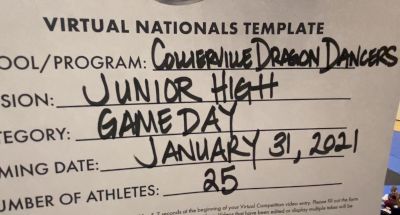 VIRTUAL NATIONALS TEMPLATE
OOL/PROGRAM: COLLIERVILLE DRAGON DANCERS
SION: JUNIOR HIGH
TEGORY: GAME DAY
MING DATE: JANUARY 31, 2021
UMBER OF ATHLETES: 25
seconds at the beginning of your Virtual Competition video entry. Please fill out the form